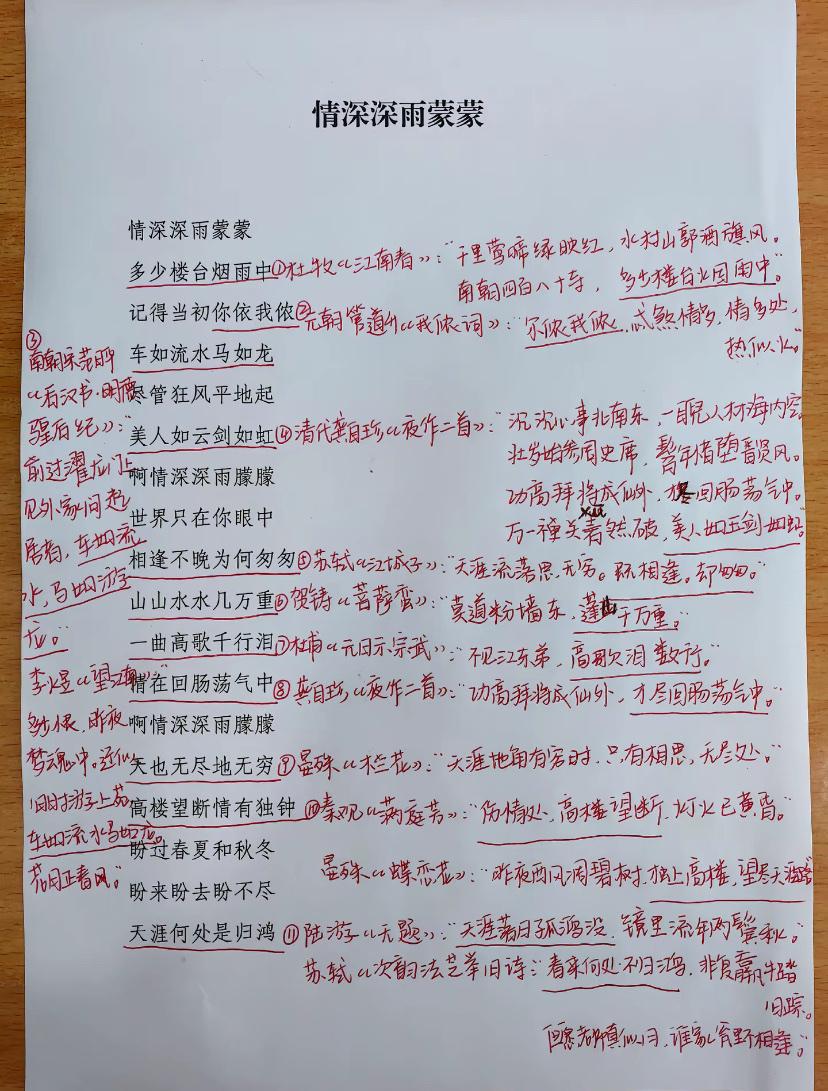 情深深雨蒙蒙
情深深雨蒙蒙
多少楼台烟雨中①杜牧《江南春》:"千里莺啼绿映红,水村山郭酒旗风。
南朝四百八十寺,多少楼台烟雨中。"
记得当初你依我侬②元朝管道升《我侬词》:"尔侬我侬,忒煞情多,情多处,
热似火。"
车如流水马如龙
③
南朝宋范晔
《后汉书·明德
皇后纪》:"
前过濯龙门上
见外家问起
居者,车如流
水,马如游
龙。"
李煜《望江南》"
多少恨,昨夜
梦魂中。还似
旧时游上苑
车如流水马如龙。
花月正春风。"
尽管狂风平地起
美人如云剑如虹④清代龚自珍《夜作二首》:"沉沉心事北南东,一睨人材海内空。
壮岁始参周史席,髫年惜堕晋贤风。
功高拜将成仙外,才尽回肠荡气中。
万一禅关砉然破,美人如玉剑如虹。"
xū
啊情深深雨朦朦
世界只在你眼中
相逢不晚为何匆匆⑤苏轼《江城子》:"天涯流落思无穷。既相逢。却匆匆。"
山山水水几万重⑥贺铸《菩萨蛮》:"莫道粉墙东,蓬山千万重。"
一曲高歌千行泪⑦杜甫《元日示宗武》:"不见江东弟,高歌泪数行。"
情在回肠荡气中⑧龚自珍《夜作二首》:"功高拜将成仙外,才尽回肠荡气中。"
啊情深深雨朦朦
天也无尽地无穷⑨晏殊《木兰花》:"天涯地角有穷时,只有相思,无尽处。"
高楼望断情有独钟⑩秦观《满庭芳》:"伤情处,高楼望断,灯火已黄昏。"
晏殊《蝶恋花》:"昨夜西风凋碧树,独上高楼,望尽天涯路"
盼过春夏和秋冬
盼来盼去盼不尽
天涯何处是归鸿⑪陆游《无题》:"天涯落日孤鸿没,镜里流年两鬓秋。"
苏轼《次韵法芝举旧诗:"春来何处不归鸿,非复羸牛踏
旧踪。
但愿老师真似月,谁家瓮里不相逢。"